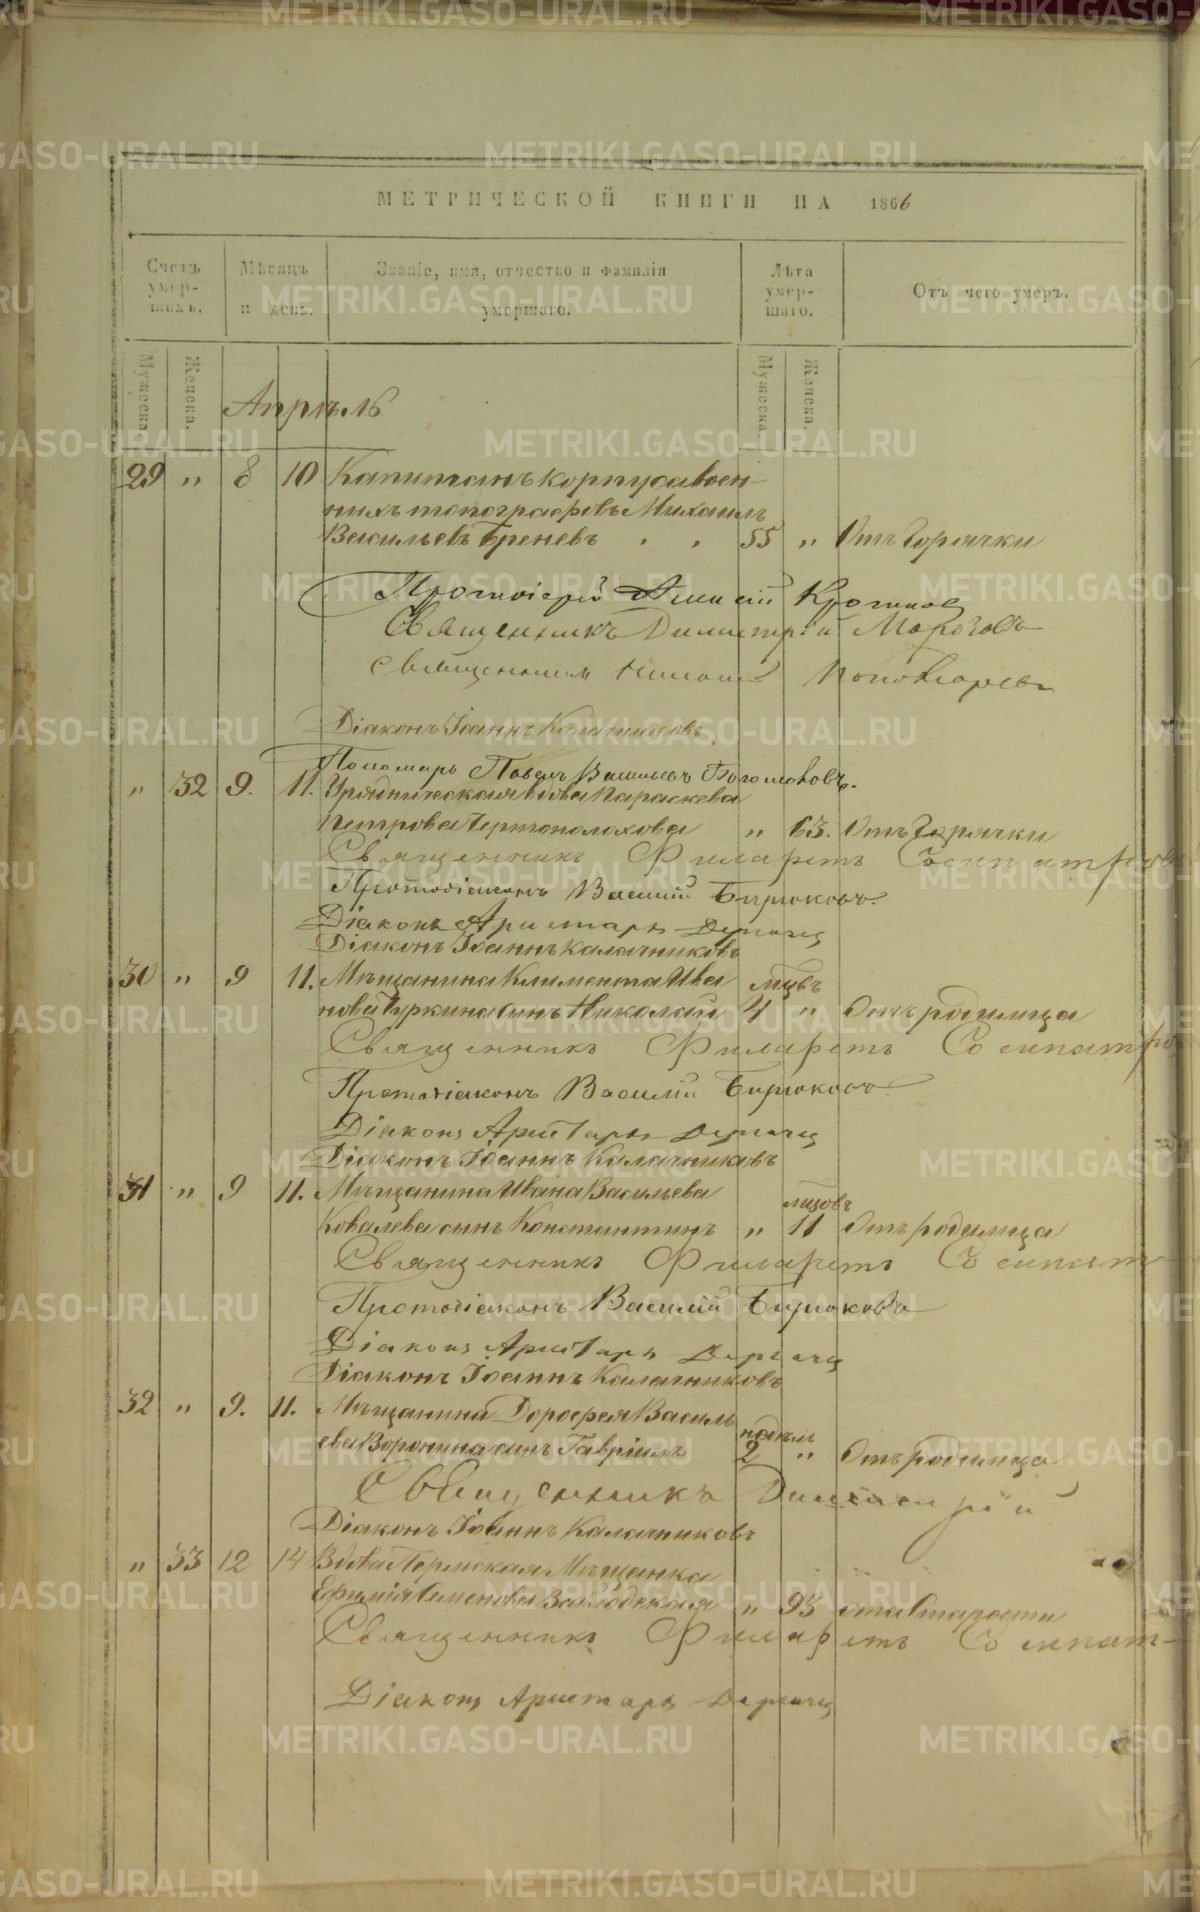 МЕТРИЧЕСКОЙ КНИГИ НА 1866
Счетъ умер-шихъ.
Мѣсяцъ и день.
Званіе, имя, отчество и фамилія умершаго.
Лѣта умер-шаго.
Отъ чего умеръ.
Мужеска. Женска. Мужеска. Женска.
Апрѣль
29 „ 8 10 Капитанъ корпуса воен-
ныхъ топографовъ Михаилъ
Васильевъ Бреневъ 55 „ Отъ горячки
Протоіерей
Священникъ Димитрій Морозовъ
Священникъ Пономарев
Діаконъ Іоаннъ Калачниковъ
Пономарь Павелъ Васильевъ Богомоловъ.
„ 32 9. 11. Урядническая вдова Параскева
Петрова Чертополохова „ 63. Отъ горячки
Священникъ Филаретъ Сосипатровъ
Протодіаконъ Василій Бирюковъ.
Діаконъ Аристархъ
Діаконъ Іоаннъ Калачниковъ
30 „ 9 11. Мѣщанина Климента Ива мцвъ
нова Чуркина сынъ Николай 4 „ Отъ родимца
Священникъ Филаретъ Сосипатро
Протодіаконъ Василій Бирюковъ
Діаконъ Аристархъ
Діаконъ Іоаннъ Калачниковъ
31 „ 9 11. Мѣщанина Ивана Васильева мцовъ
Ковалева сынъ Константинъ „ 11 Отъ родимца
Священникъ Филаретъ Сосипат
Протодіаконъ Василій Бирюковъ
Діаконъ Аристархъ
Діаконъ Іоаннъ Калачниковъ
32 „ 9. 11. Мѣщанина Дорофея Василь недѣль
ева Воронина сынъ Гавріилъ 2 „ Отъ родимца
Священникъ Димитрій
Діаконъ Іоаннъ Калачниковъ
„ 33 12 14 Вдова Пермская Мѣщанка
Ефимія Семенова Заводская „ 93 отъ старости
Священникъ Филаретъ Сосипат-
Діаконъ Аристархъ
METRIKI.GASO-URAL.RU